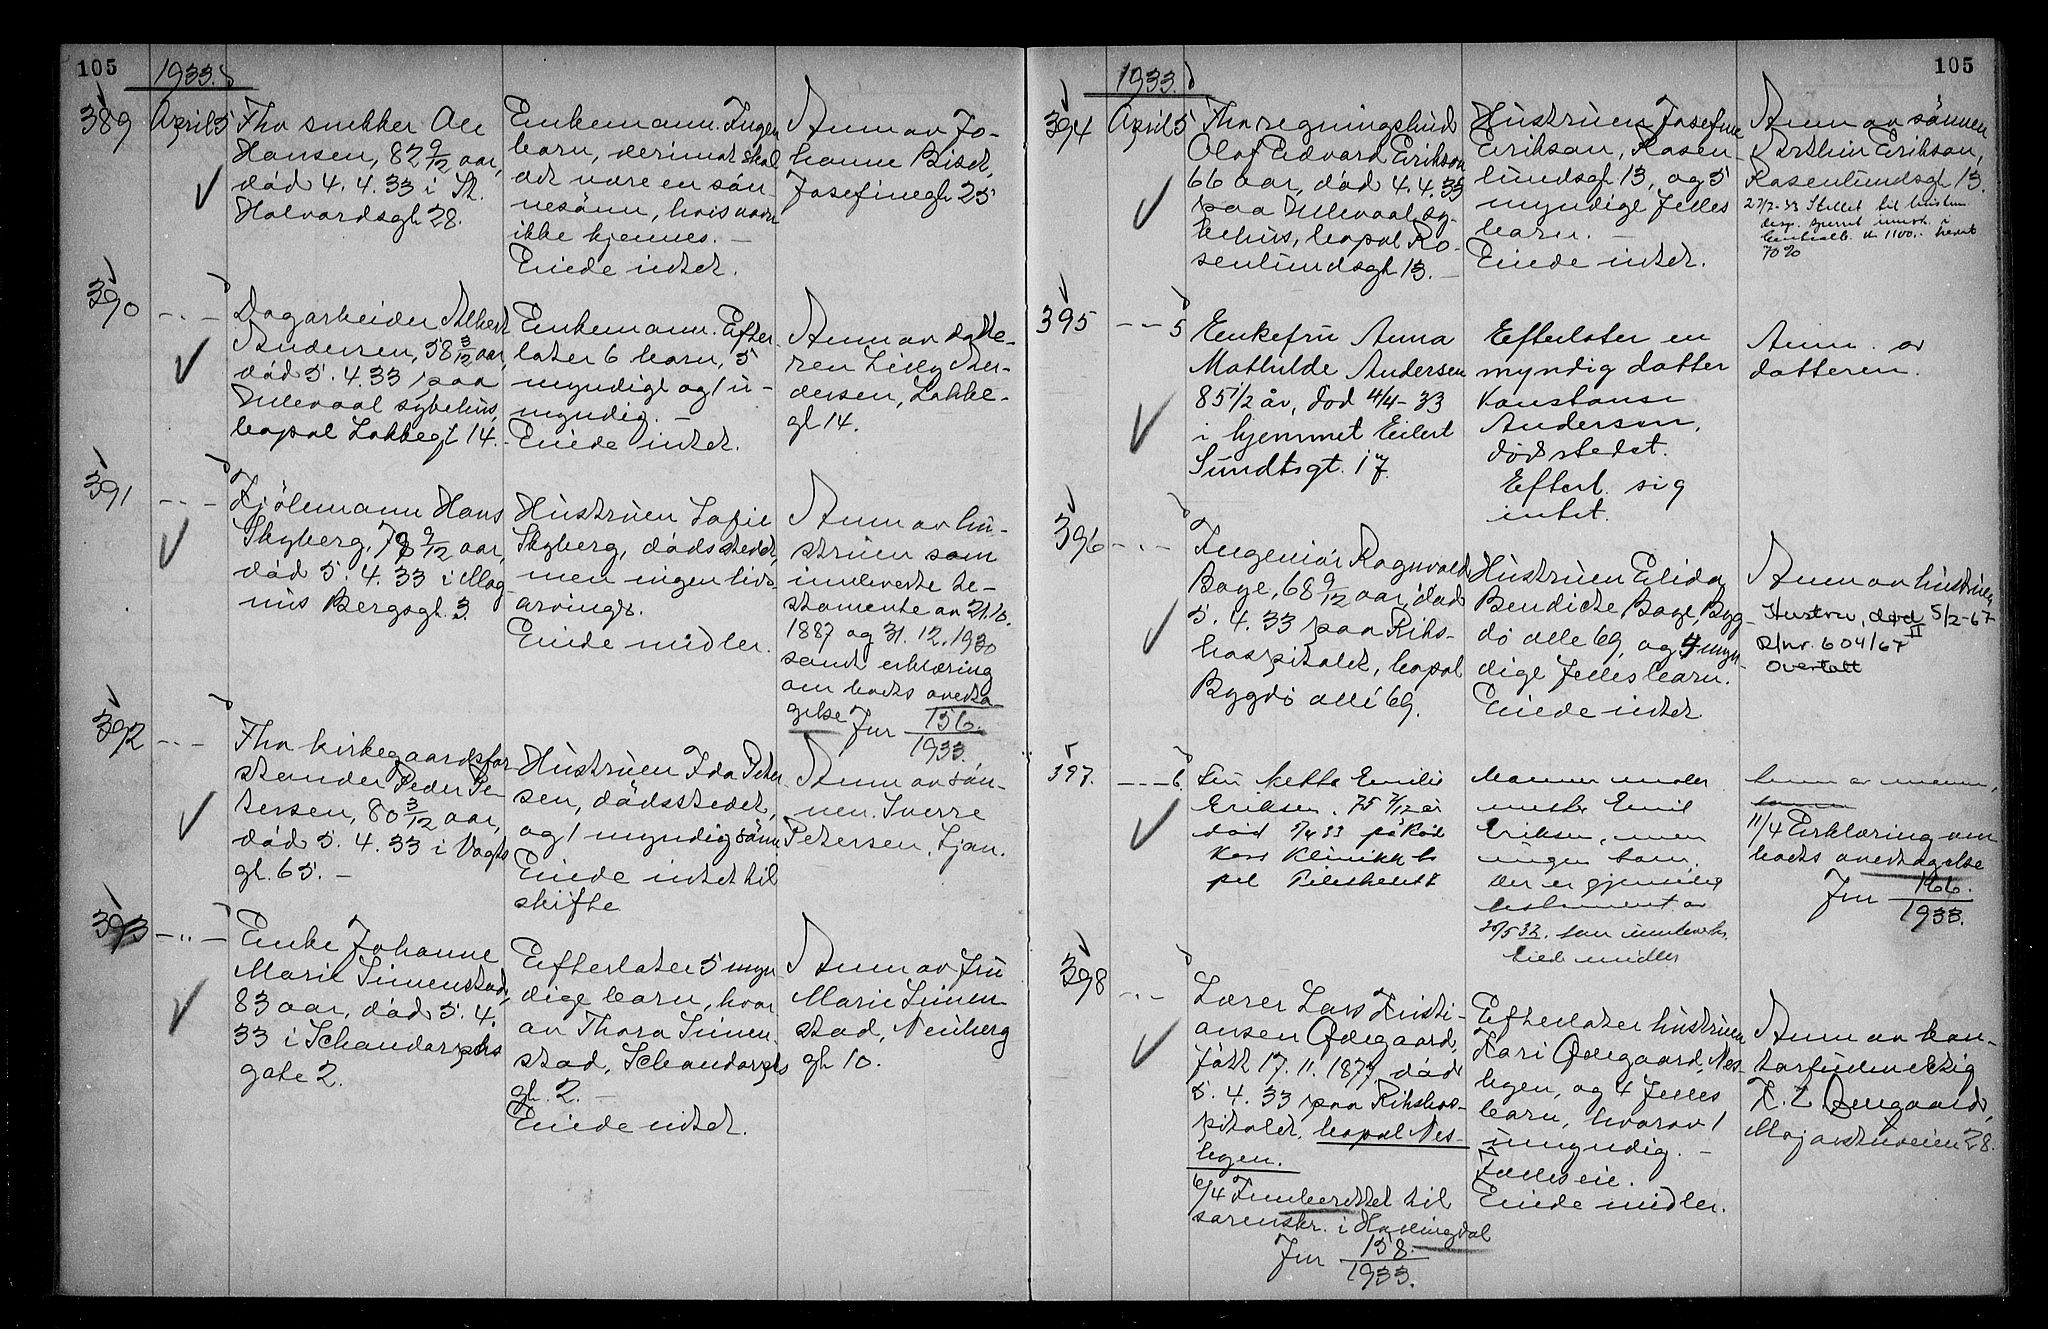 105
1933.
389
April 5
Fhv snekker Ole
Hansen, 82 9/12 aar,
död 4.4.33 i St.
Halvardsgt 28.
Enkemann. Ingen
barn, derimot skal
det være en sön-
nesönn, hvis navn
ikke kjennes. —
Eiede intet.
Anm av Jo-
hanne
Josefinegt 25
390
— " —
Dagarbeider Albert
Andersen, 58 3/12 aar,
död 5.4.33 paa
Ullevaal sykehus,
bopæl Lakkegt 14.
Enkemann. Efter-
later 6 barn, 5
myndige og 1 u-
myndig. —
Eiede intet.
Anm av datte-
ren Lilly An-
dersen, Lakke-
gt 14.
391
— " —
Kjölemann Hans
Skyberg, 78 9/12 aar,
död 5.4.33 i Mag
nus Bergsgt. 3.
Hustruen Sofie
Skyberg, dödsstedet,
men ingen livs-
arvinger.
Eiede midler.
Anm av hu-
struen som
innleverte te-
stamente av 21.10.
1887 og 31.12.1930
samt erklæring
om boets overta
gelse Jnr 156.
1933.
392
— " —
Fhv kirkegaardsfor-
stander Peder Pe-
tersen, 80 3/12 aar,
död 5.4.33 i Vogts
gt. 65. —
Hustruen Ida Peter
sen, dödsstedet,
og 1 myndig sönn
Eiede intet til
skifte
Anm av sön-
nen. Sverre
Petersen, Ljan.
393
— " —
Enke Johanne
Marie Simenstad,
83 aar, död 5.4.
33 i Schandorphs
gate 2.
Efterlater 5 myn
dige barn, hvor
av Thora Simen
stad, Schandorphs
gt. 2. —
Eiede intet.
Anm av fru
Marie Simen
stad, Neuberg
gt 10.
105
1933.
394
April 5
Fhv regningsbud
Olaf Edvard Erikson
66 aar, död 4.4.33
paa Ullevaal sy-
kehus, bopæl Ro-
senlundsgt 13. —
Hustruen Josefine
Erikson, Rosen-
lundsgt 13, og 5
myndige felles
barn. —
Eiede intet.
Anm av sönnen
Arthur Erikson,
Rosenlundsgt 13.
til hustru
disp. sperret innsk. i
kr 1100.-
70%
395
— " — 5
Enkefru Anna
Mathilde Andersen
85 1/2 år, död 4/4-33
i hjemmet Eilert
Sundtsgt. 17.
Efterlater en
myndig datter
Konstanse
Andersen,
dödsstedet.
Efterl. sig
intet.
Anm. av
datteren.
396
— " —
Ingeniör Ragnvald
Bøge, 68 9/12 aar, död
5.4.33 paa Riks-
hospitalet, bopæl
Bygdö allé 69.
Hustruen Elida
Bendicte Bøge, Byg-
dö alle 69, og 4 myn
dige felles barn.
Eiede intet
Anm av hustruen
Hustru, død 5/2-67
S/nr. 604/67 II
Overtatt
397.
— " — 6
Fru Emilie
Eriksen, 75 7/12 år
död 5/4 33 på Röd
Kors Klinikk bo
pel Pilestredet
Mannen
Emil
Eriksen, men
ingen barn.
Der er gjensidig
testament av
20/5 32. som innleveres.
Eied midler
Anm av mannen,
11/4 Erklæring om
boets overtagelse
Jnr 166.
1933.
398
— " —
Lærer Lars Kristi-
ansen Ødegaard,
født 17.11.1877, död
5.4.33 paa Rikshos-
pitalet, bopæl Nes-
byen.
6/4 Innberettet til
sorenskr. i Hallingdal
Jnr 158.
1933.
Efterlater hustruen
Kari Ødegaard, Nes-
byen, og 4 felles
barn, hvorav 1
umyndig. —
Felleseie.
Eiede midler.
Anm av kon-
torfullmektig
K. L. Ødegaard,
Majorstuveien 28.